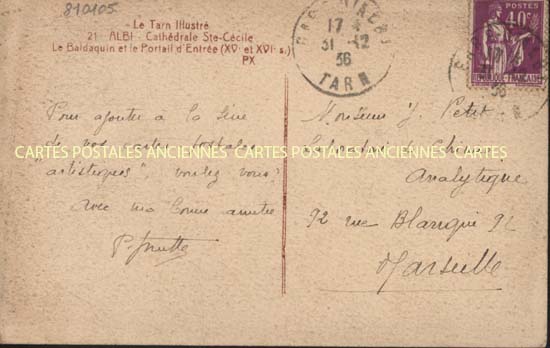 810105
Le Tarn Illustré
21 - ALBI - Cathédrale Ste-Cécile
Le Baldaquin et le Portail d'Entrée (XVe et XVIe s.)
PX
17
31 -12
36
TARN
POSTES
40c
REPUBLIQUE FRANÇAISE
36
Pour ajouter à la série
de vos cartes postales
"artistiques" voulez vous?
avec ma bonne amitié
Monsieur J. Petit
Laboratoire de Chimie
Analytique
92 rue Blanqui 92
Marseille
CARTES POSTALES ANCIENNES CARTES POSTALES ANCIENNES CARTES